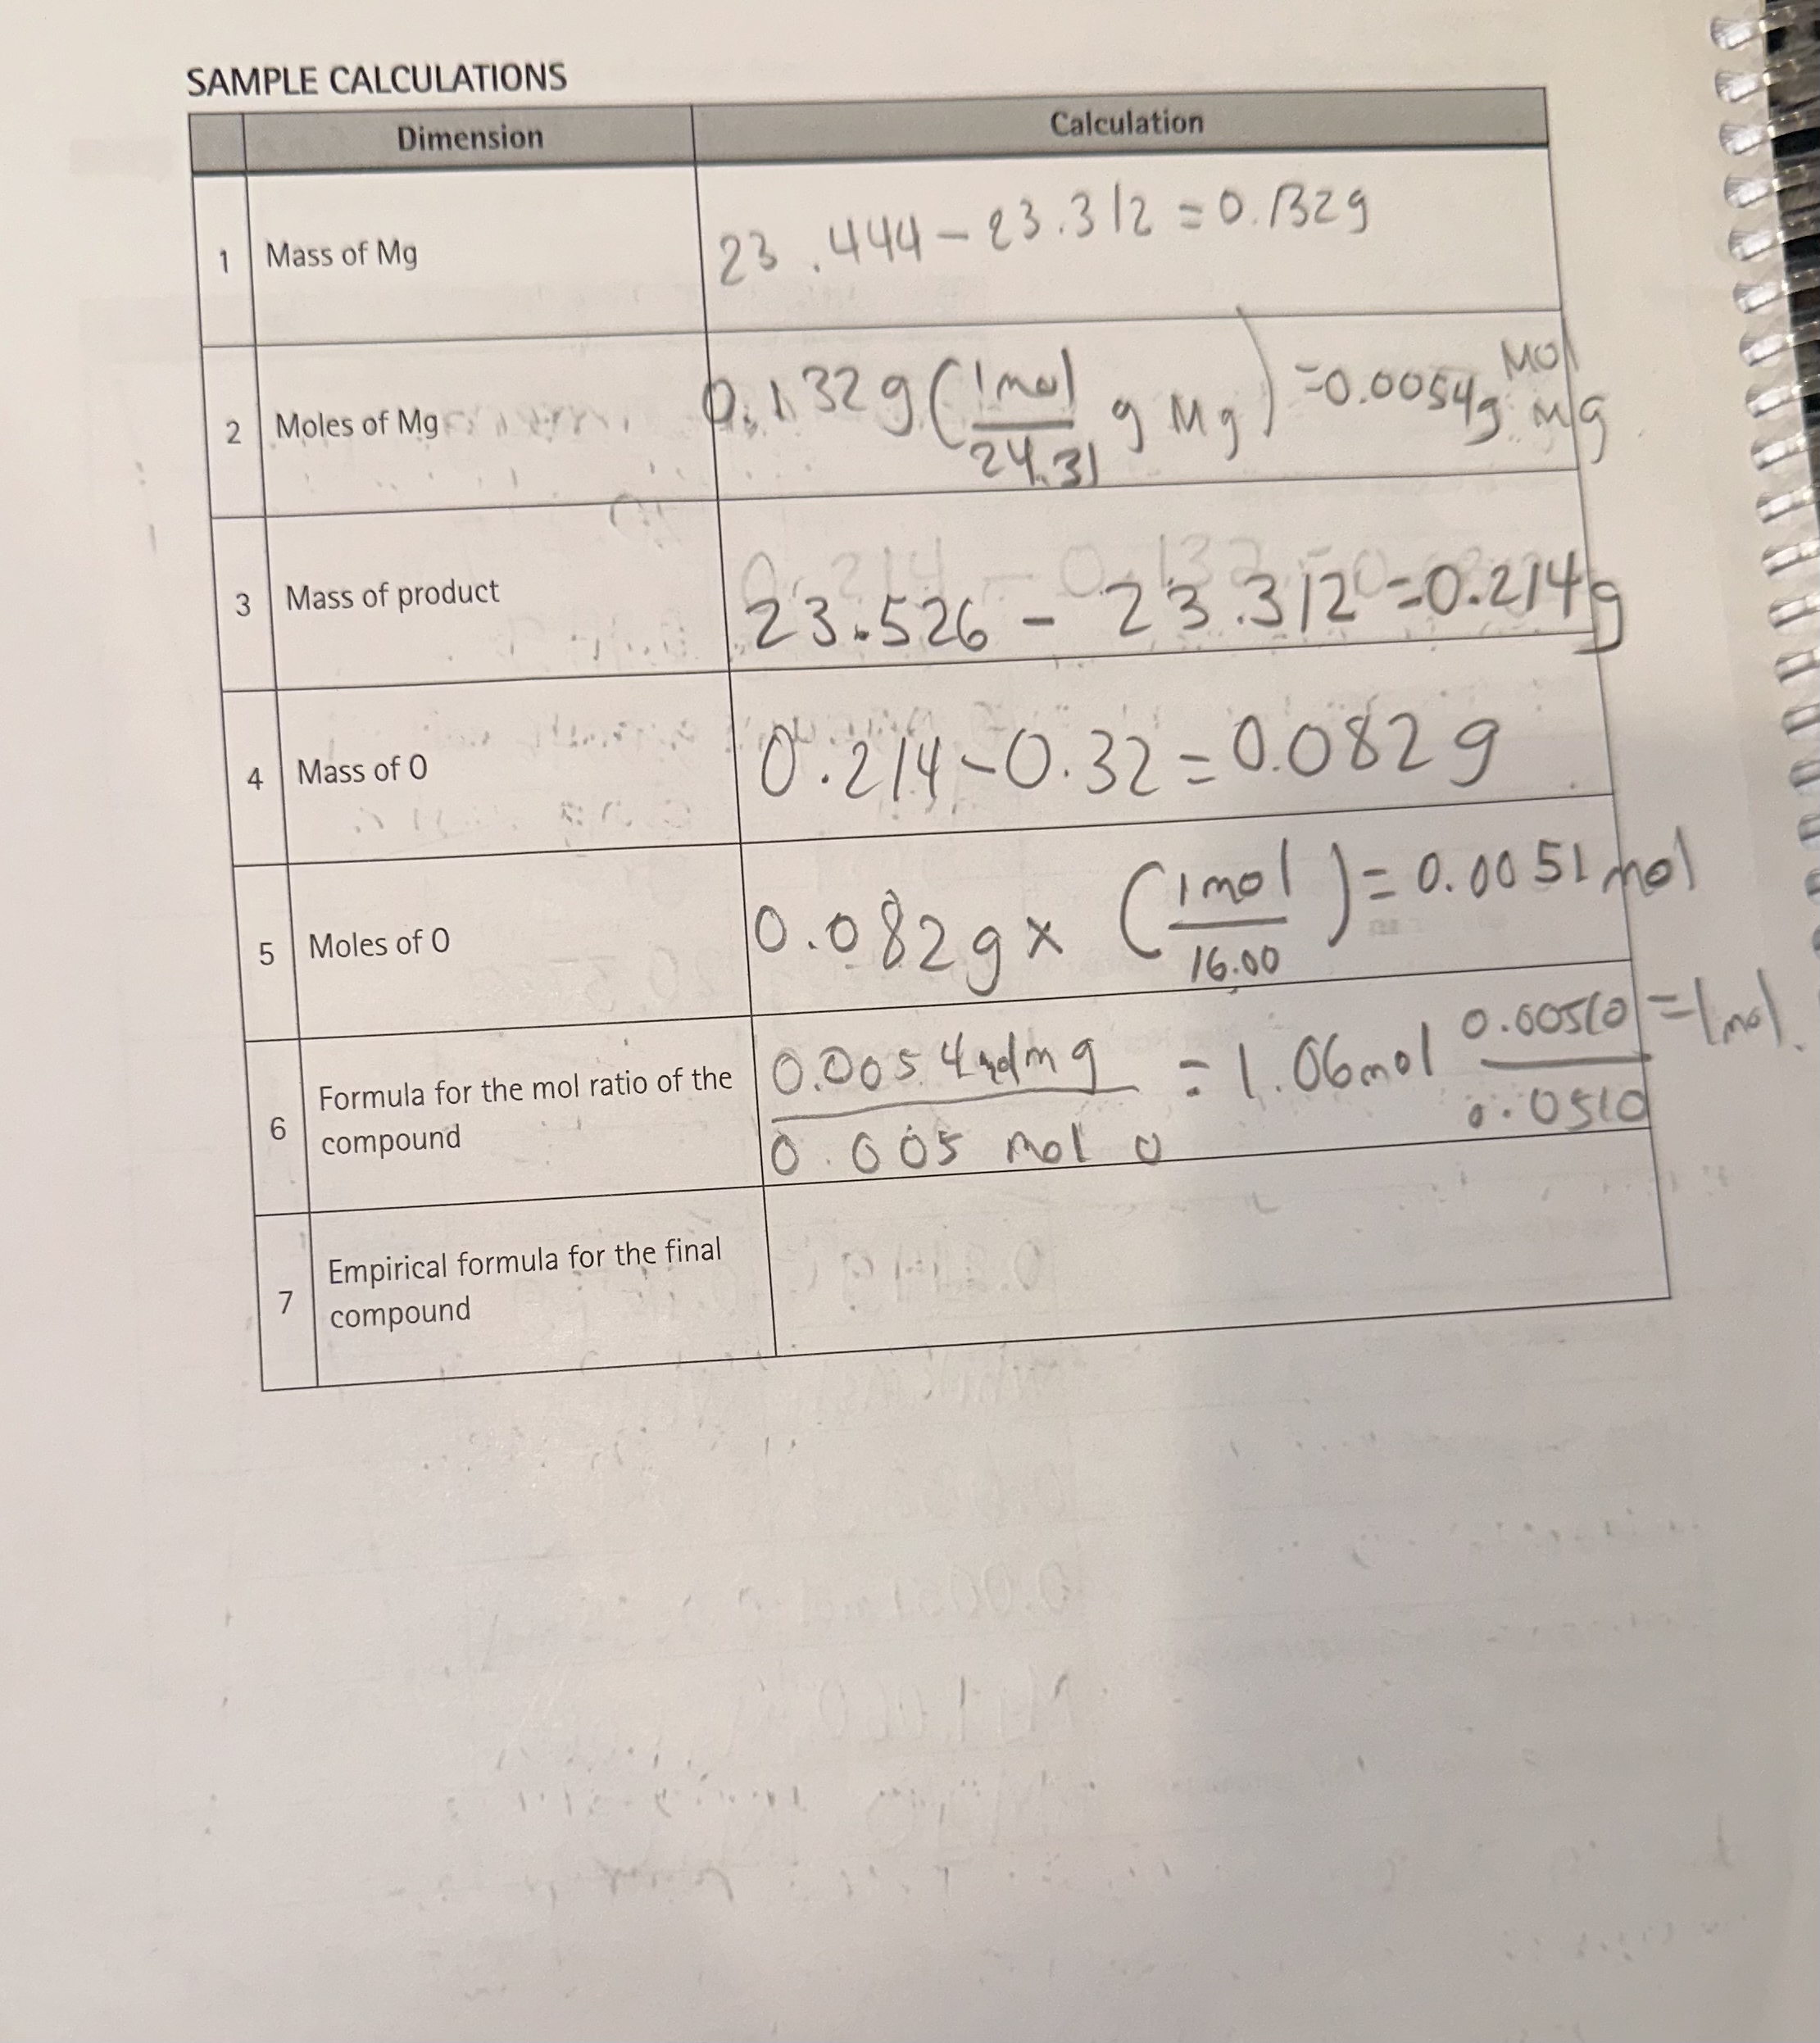 SAMPLE CALCULATIONS
Dimension Calculation
1 Mass of Mg 23.444 - 23.312 = 0.132g
2 Moles of Mg 0.132g (1mol / 24.31 g Mg) = 0.0054g Mol Mg
3 Mass of product 23.526 - 23.312 = 0.214g
4 Mass of O 0.214 - 0.32 = 0.082g
5 Moles of O 0.082g x (1mol / 16.00) = 0.0051 mol
6 Formula for the mol ratio of the
compound
0.0054 mol mg / 0.005 mol O = 1.06mol 0.00510 / 0.0510 = 1mol.
7 Empirical formula for the final
compound